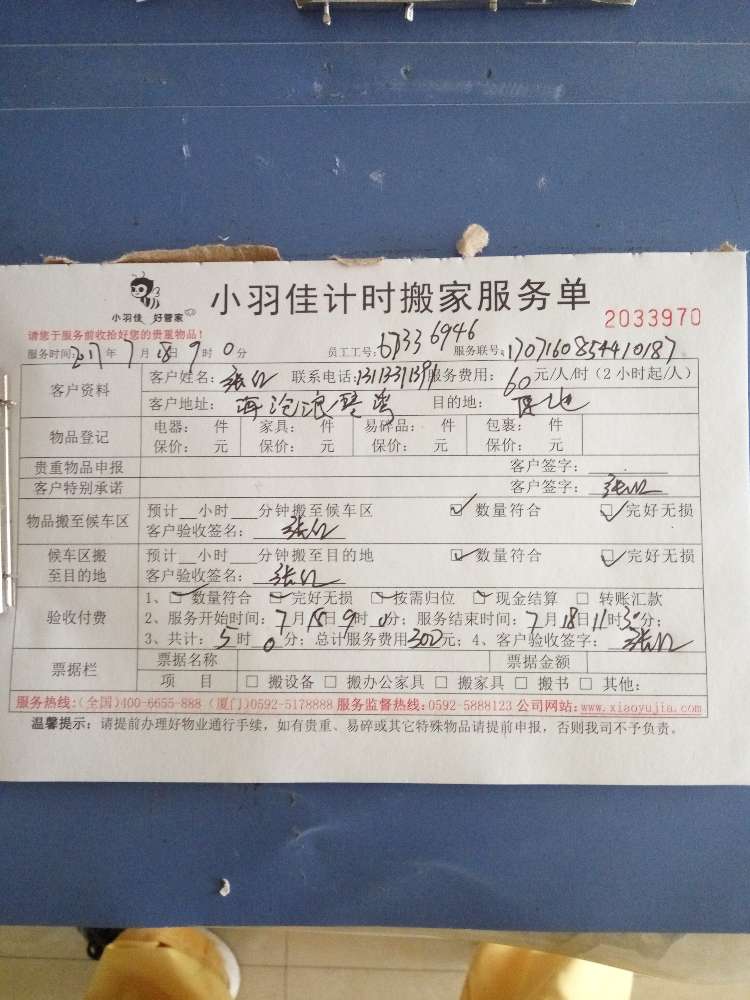 小羽佳 好管家
小羽佳计时搬家服务单
2033970
请您于服务前收拾好您的贵重物品!
服务时间: 2017年 7月 18日 9时 0分 员工工号: 6946 服务联号: 1707160854410187
客户资料 客户姓名: 联系电话: 服务费用: 60 元/人/时(2小时起/人)
客户地址: 海沧浪琴湾 目的地:
物品登记 电器: 件 家具: 件 易碎品: 件 包裹: 件
保价: 元 保价: 元 保价: 元 保价: 元
贵重物品申报 客户签字:
客户特别承诺 客户签字:
物品搬至候车区 预计__小时__分钟搬至候车区 ☑数量符合 ☑完好无损
客户验收签名:
候车区搬至目的地 预计__小时__分钟搬至目的地 ☑数量符合 ☑完好无损
客户验收签名:
验收付费 1、☑数量符合 ☑完好无损 ☑按需归位 ☑现金结算 □转账汇款
2、服务开始时间: 7月18日9时0分; 服务结束时间: 7月18日11时30分;
3、共计: 5时0分; 总计服务费用302元; 4、客户验收签字:
票据栏 票据名称 票据金额
项 目 □搬设备 □搬办公家具 □搬家具 □搬书 □其他:
服务热线:(全国)400-6655-888 (厦门)0592-5178888 服务监督热线:0592-5888123 公司网站:www.xiaoyujia.com
温馨提示: 请提前办理好物业通行手续, 如有贵重、易碎或其它特殊物品请提前申报, 否则我司不予负责。